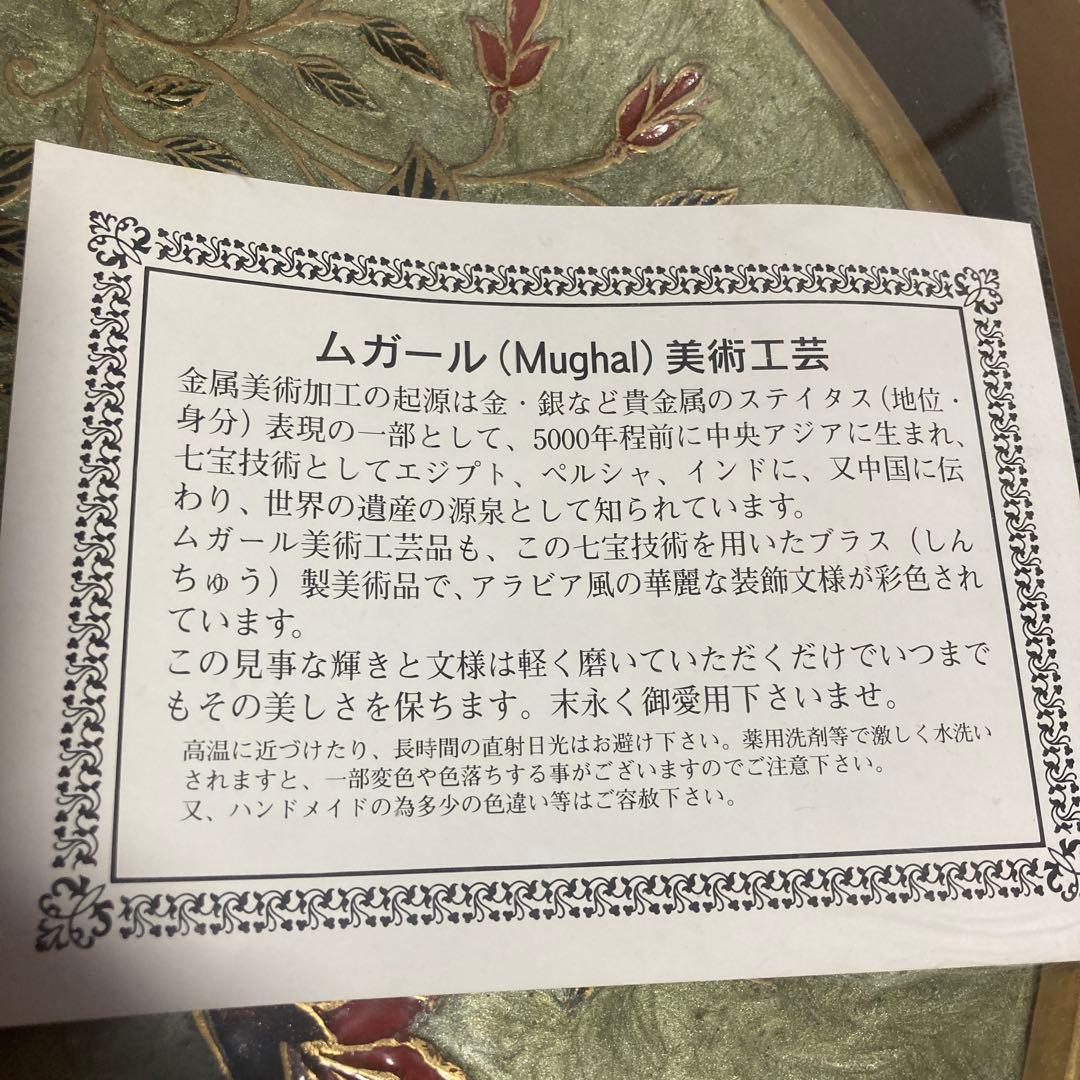 ムガール(Mughal)美術工芸
金属美術加工の起源は金・銀など貴金属のステイタス(地位・
身分)表現の一部として、5000年程前に中央アジアに生まれ、
七宝技術としてエジプト、ペルシャ、インドに、又中国に伝
わり、世界の遺産の源泉として知られています。
ムガール美術工芸品も、この七宝技術を用いたブラス(しん
ちゅう)製美術品で、アラビア風の華麗な装飾文様が彩色され
ています。
この見事な輝きと文様は軽く磨いていただくだけでいつまで
もその美しさを保ちます。末永く御愛用下さいませ。
高温に近づけたり、長時間の直射日光はお避け下さい。薬用洗剤等で激しく水洗い
されますと、一部変色や色落ちする事がございますのでご注意下さい。
又、ハンドメイドの為多少の色違い等はご容赦下さい。